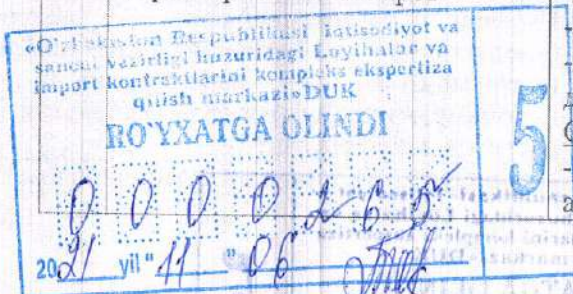 «O'zbekiston Respublikasi Iqtisodiyot va
sanoat vazirligi huzuridagi Loyihalar va
import kontraktlarini kompleks ekspertiza
qilish markazi» DUK
RO'YXATGA OLINDI
5
0 0 0 0 2 6 5
2021 yil "11" 06